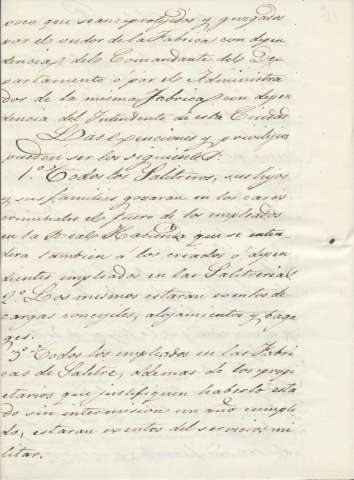 poco que sean protejidos y juzgados
por el veedor de la Fabrica con depen
dencia del Comandante del De
partamento ó por el Administra
dor de la misma Fabrica con depen
dencia del Yntendente de esta Ciudad
Las exenciones y privilegios
pueden ser los siguientes:
1.º Todos los Salitreros, sus hijos
y sus familias gozaran en los casos
criminales el fuero de los empleados
en la Real Hacienda que se esten
dera tambien a los criados ó depen
dientes empleados en las Salitrerias
2.º Los mismos estaran esentos de
cargas concejiles, alojamientos y baga
ges.
3.º Todos los empleados en las Fabri
cas de Salitre, ademas de los propi
etarios que justifiquen haberlo esta
do sin intermision un año cumpli
do, estaran esentos del servicio mi
litar.